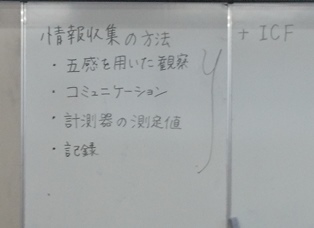 情報収集の方法
・五感を用いた観察
・コミュニケーション
・計測器の測定値
・記録
+ ICF